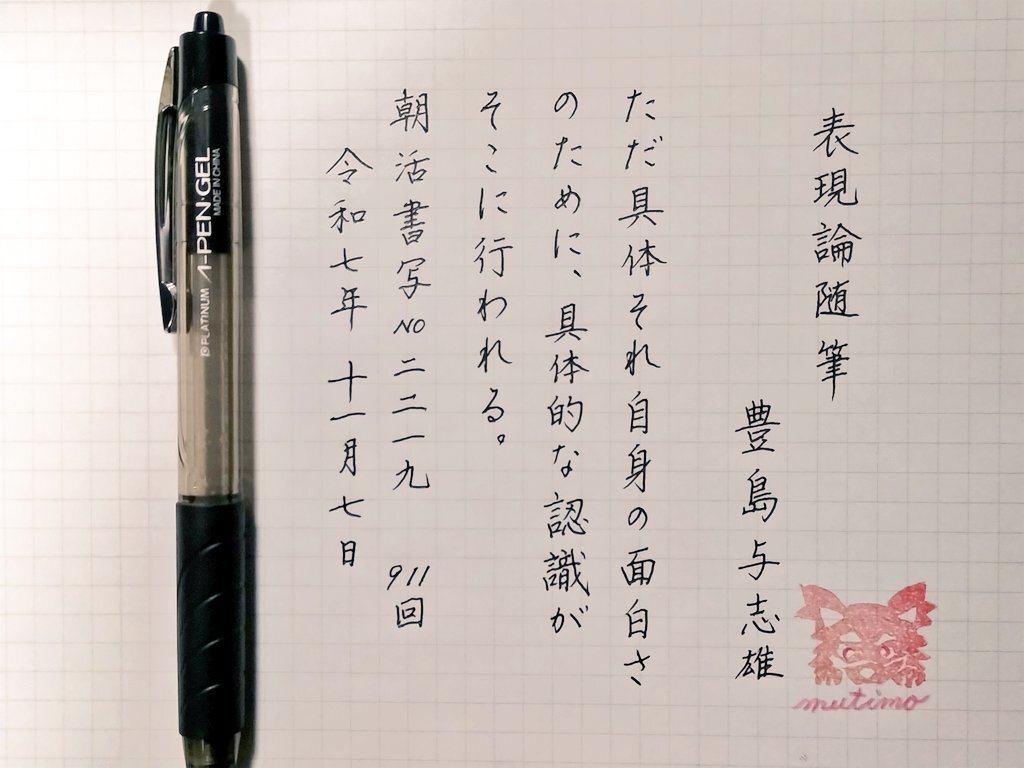 表現論随筆
豊島与志雄
ただ具体それ自身の面白さ
のために、具体的な認識が
そこに行われる。
朝活書写NO二二一九 911回
令和七年 十一月七日
mutimo
PLATINUM A-PEN・GEL
MADE IN CHINA